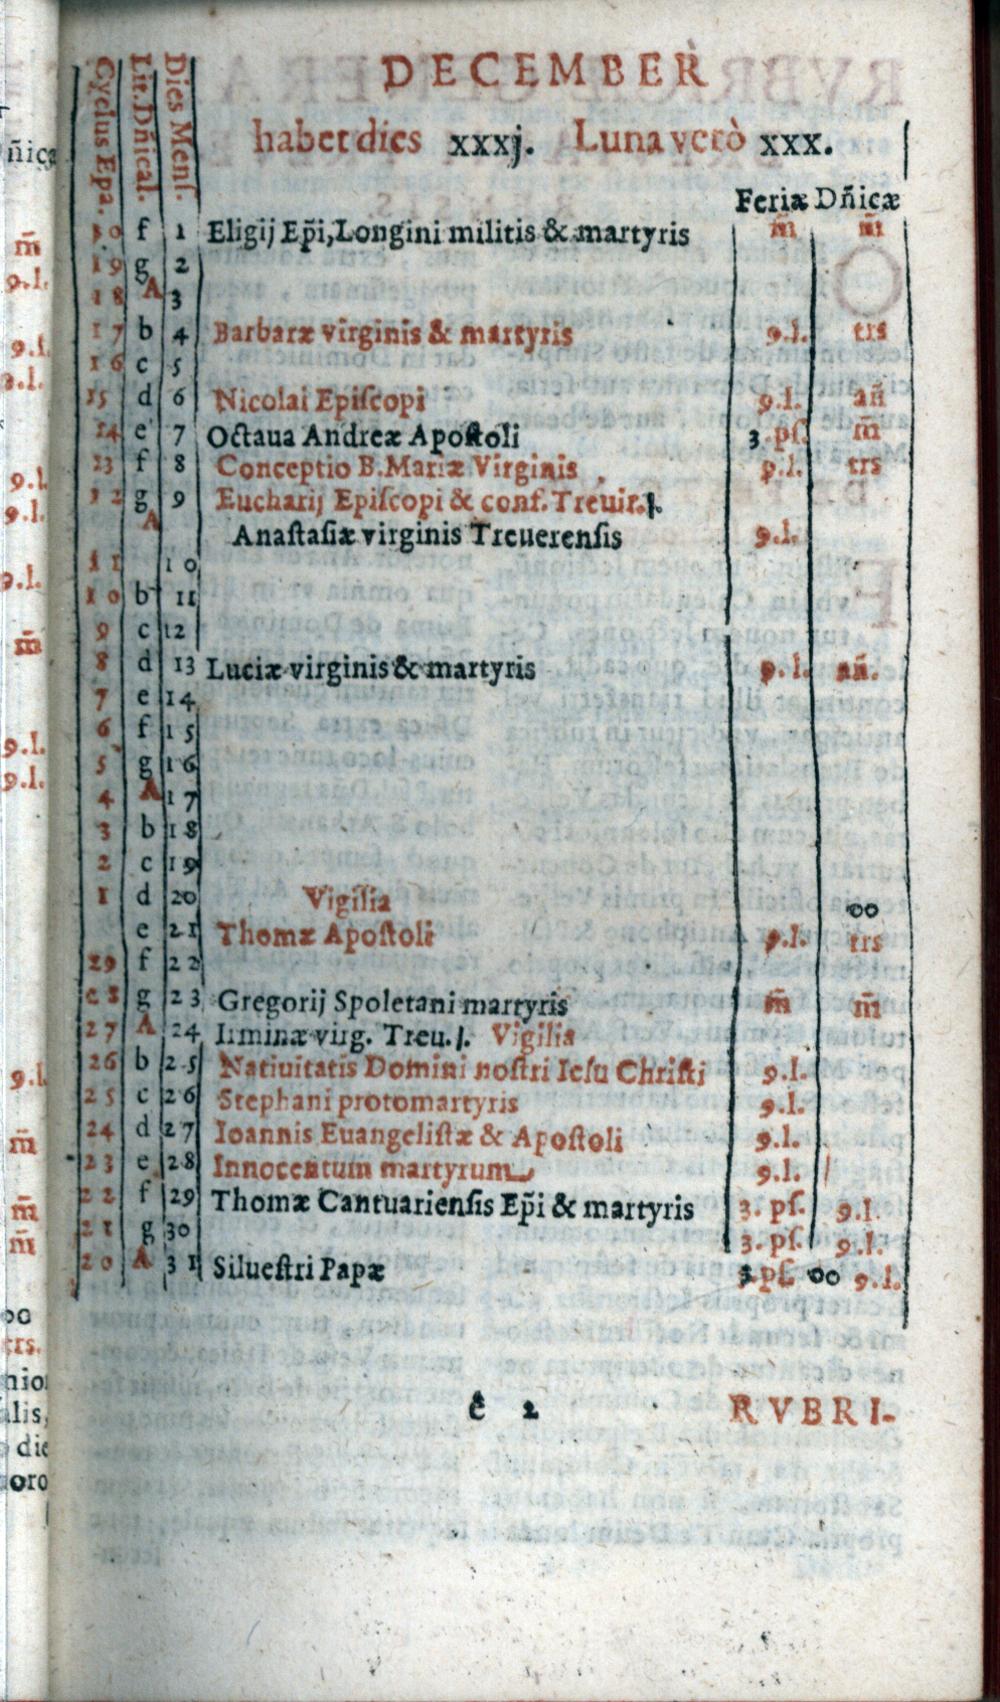 DECEMBER
habet dies xxxj. Luna verò xxx.
Cyclus Epa. Lit. Dñical. Dies Mens. Feriæ Dñicæ
30 f 1 Eligij Epĩ, Longini militis & martyris m̃ m̃
19 g 2
18 A 3
17 b 4 Barbaræ virginis & martyris 9.l. trs
16 c 5
15 d 6 Nicolai Episcopi 9.l. añ
14 e 7 Octaua Andreæ Apostoli 3.ps. m̃
13 f 8 Conceptio B. Mariæ Virginis 9.l. trs
12 g 9 Eucharij Episcopi & conf. Treuir.
Anastasiæ virginis Treuerensis 9.l.
11 A 10
10 b 11
9 c 12
8 d 13 Luciæ virginis & martyris 9.l. añ.
7 e 14
6 f 15
5 g 16
4 A 17
3 b 18
2 c 19
1 d 20 Vigilia oo
e 21 Thomæ Apostoli 9.l. trs
29 f 22
28 g 23 Gregorij Spoletani martyris m̃ m̃
27 A 24 Irminæ virg. Treu. Vigilia
26 b 25 Natiuitatis Domini nostri Iesu Christi 9.l.
25 c 26 Stephani protomartyris 9.l.
24 d 27 Ioannis Euangelistæ & Apostoli 9.l.
23 e 28 Innocentum martyrum 9.l.
22 f 29 Thomæ Cantuariensis Epĩ & martyris 3. ps. 9.l.
21 g 30 3. ps. 9.l.
20 A 31 Siluestri Papæ 3.ps. oo 9.l.
ẽ 2 RVBRI-